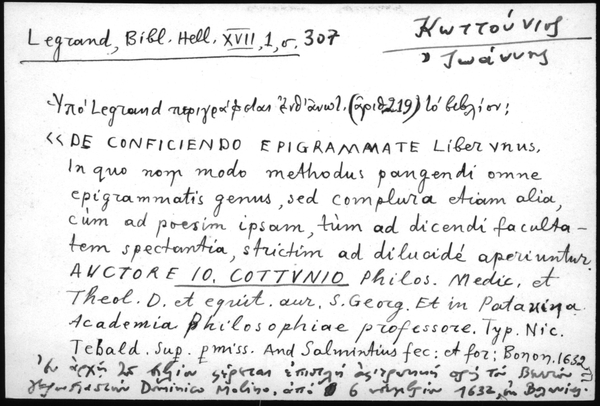 Legrand, Bibl. Hell. XVII, 1, σ. 307
Κωττούνιος
Ἰωάννης
Ὑπό Legrand περιγράφεται ἐνθ' ἀνωτ. (ἀριθ. 219) τό βιβλίον:
«DE CONFICIENDO EPIGRAMMATE Liber vnus.
In quo non modo methodus pangendi omne
epigrammatis genus, sed complura etiam alia,
cùm ad poesim ipsam, tùm ad dicendi faculta-
tem spectantia, strictim ad dilucidè aperiuntur.
AVCTORE IO. COTTVNIO Philos. Medic. et
Theol. D. et equit. aur. S. Georg. Et in Patavina
Academia philosophiae professore. Typ. Nic.
Tebald. Sup. pmiss. And Salmintius fec: et for; Bonon. 1632
Ἐν ἀρχῇ τοῦ βιβλίου φέρεται ἐπιστολή ἀφιερωτική πρός τόν
Dominico Molino, ἀπό 6 1632, ἐν